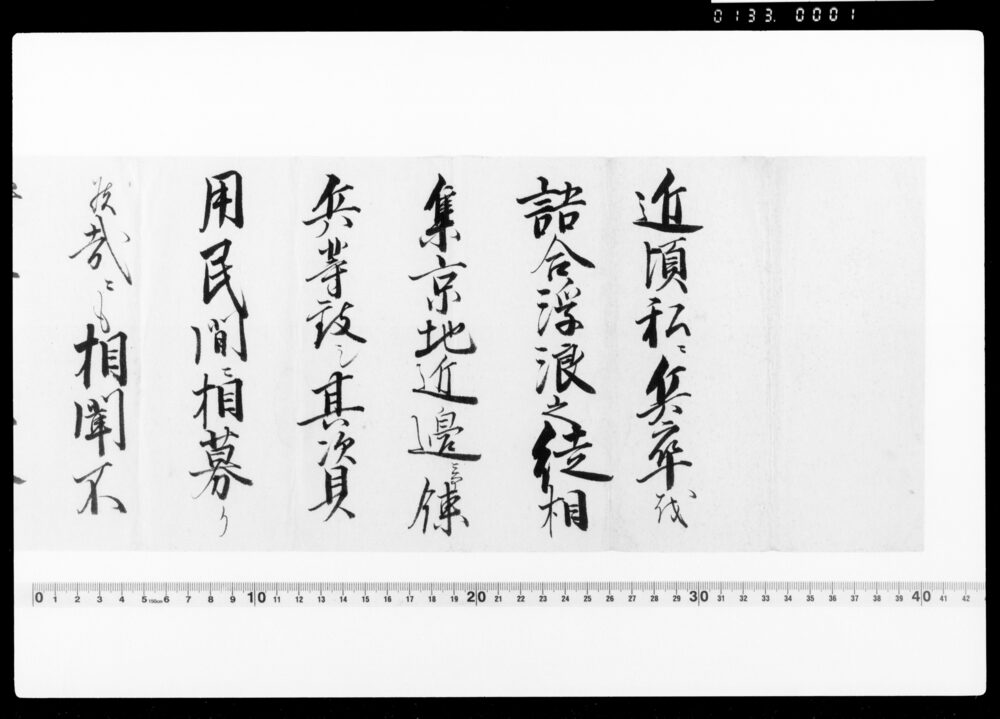 0133. 0001
近頃私ニ兵卒越
語合浮浪之徒相
集京地近邊ニ而練
兵等致し其資
用民間ニ相募り
候哉ニも相聞不
0 1 2 3 4 5 150cm 6 7 8 9 10 11 12 13 14 15 16 17 18 19 20 21 22 23 24 25 26 27 28 29 30 31 32 33 34 35 36 37 38 39 40 41 42